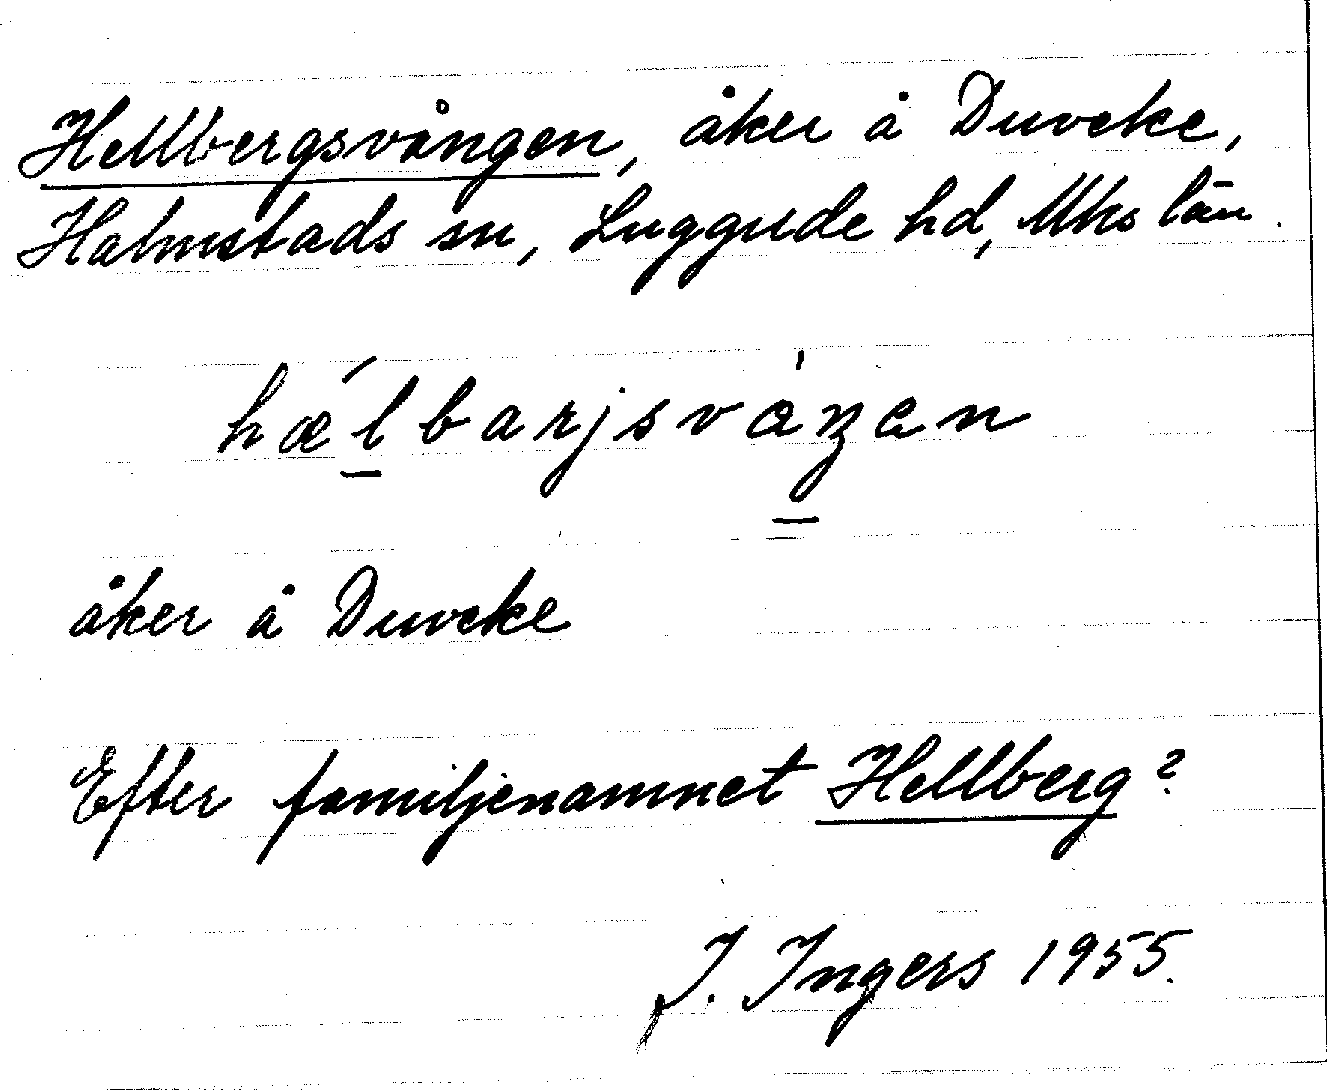 Hellbergsvången, åker å Duveke,
Halmstads sn, Luggude hd, Mhs län.
hǽlbarjsvåŋen
åker å Duveke
Efter familjenamnet Hellberg?
J. Ingers 1955.